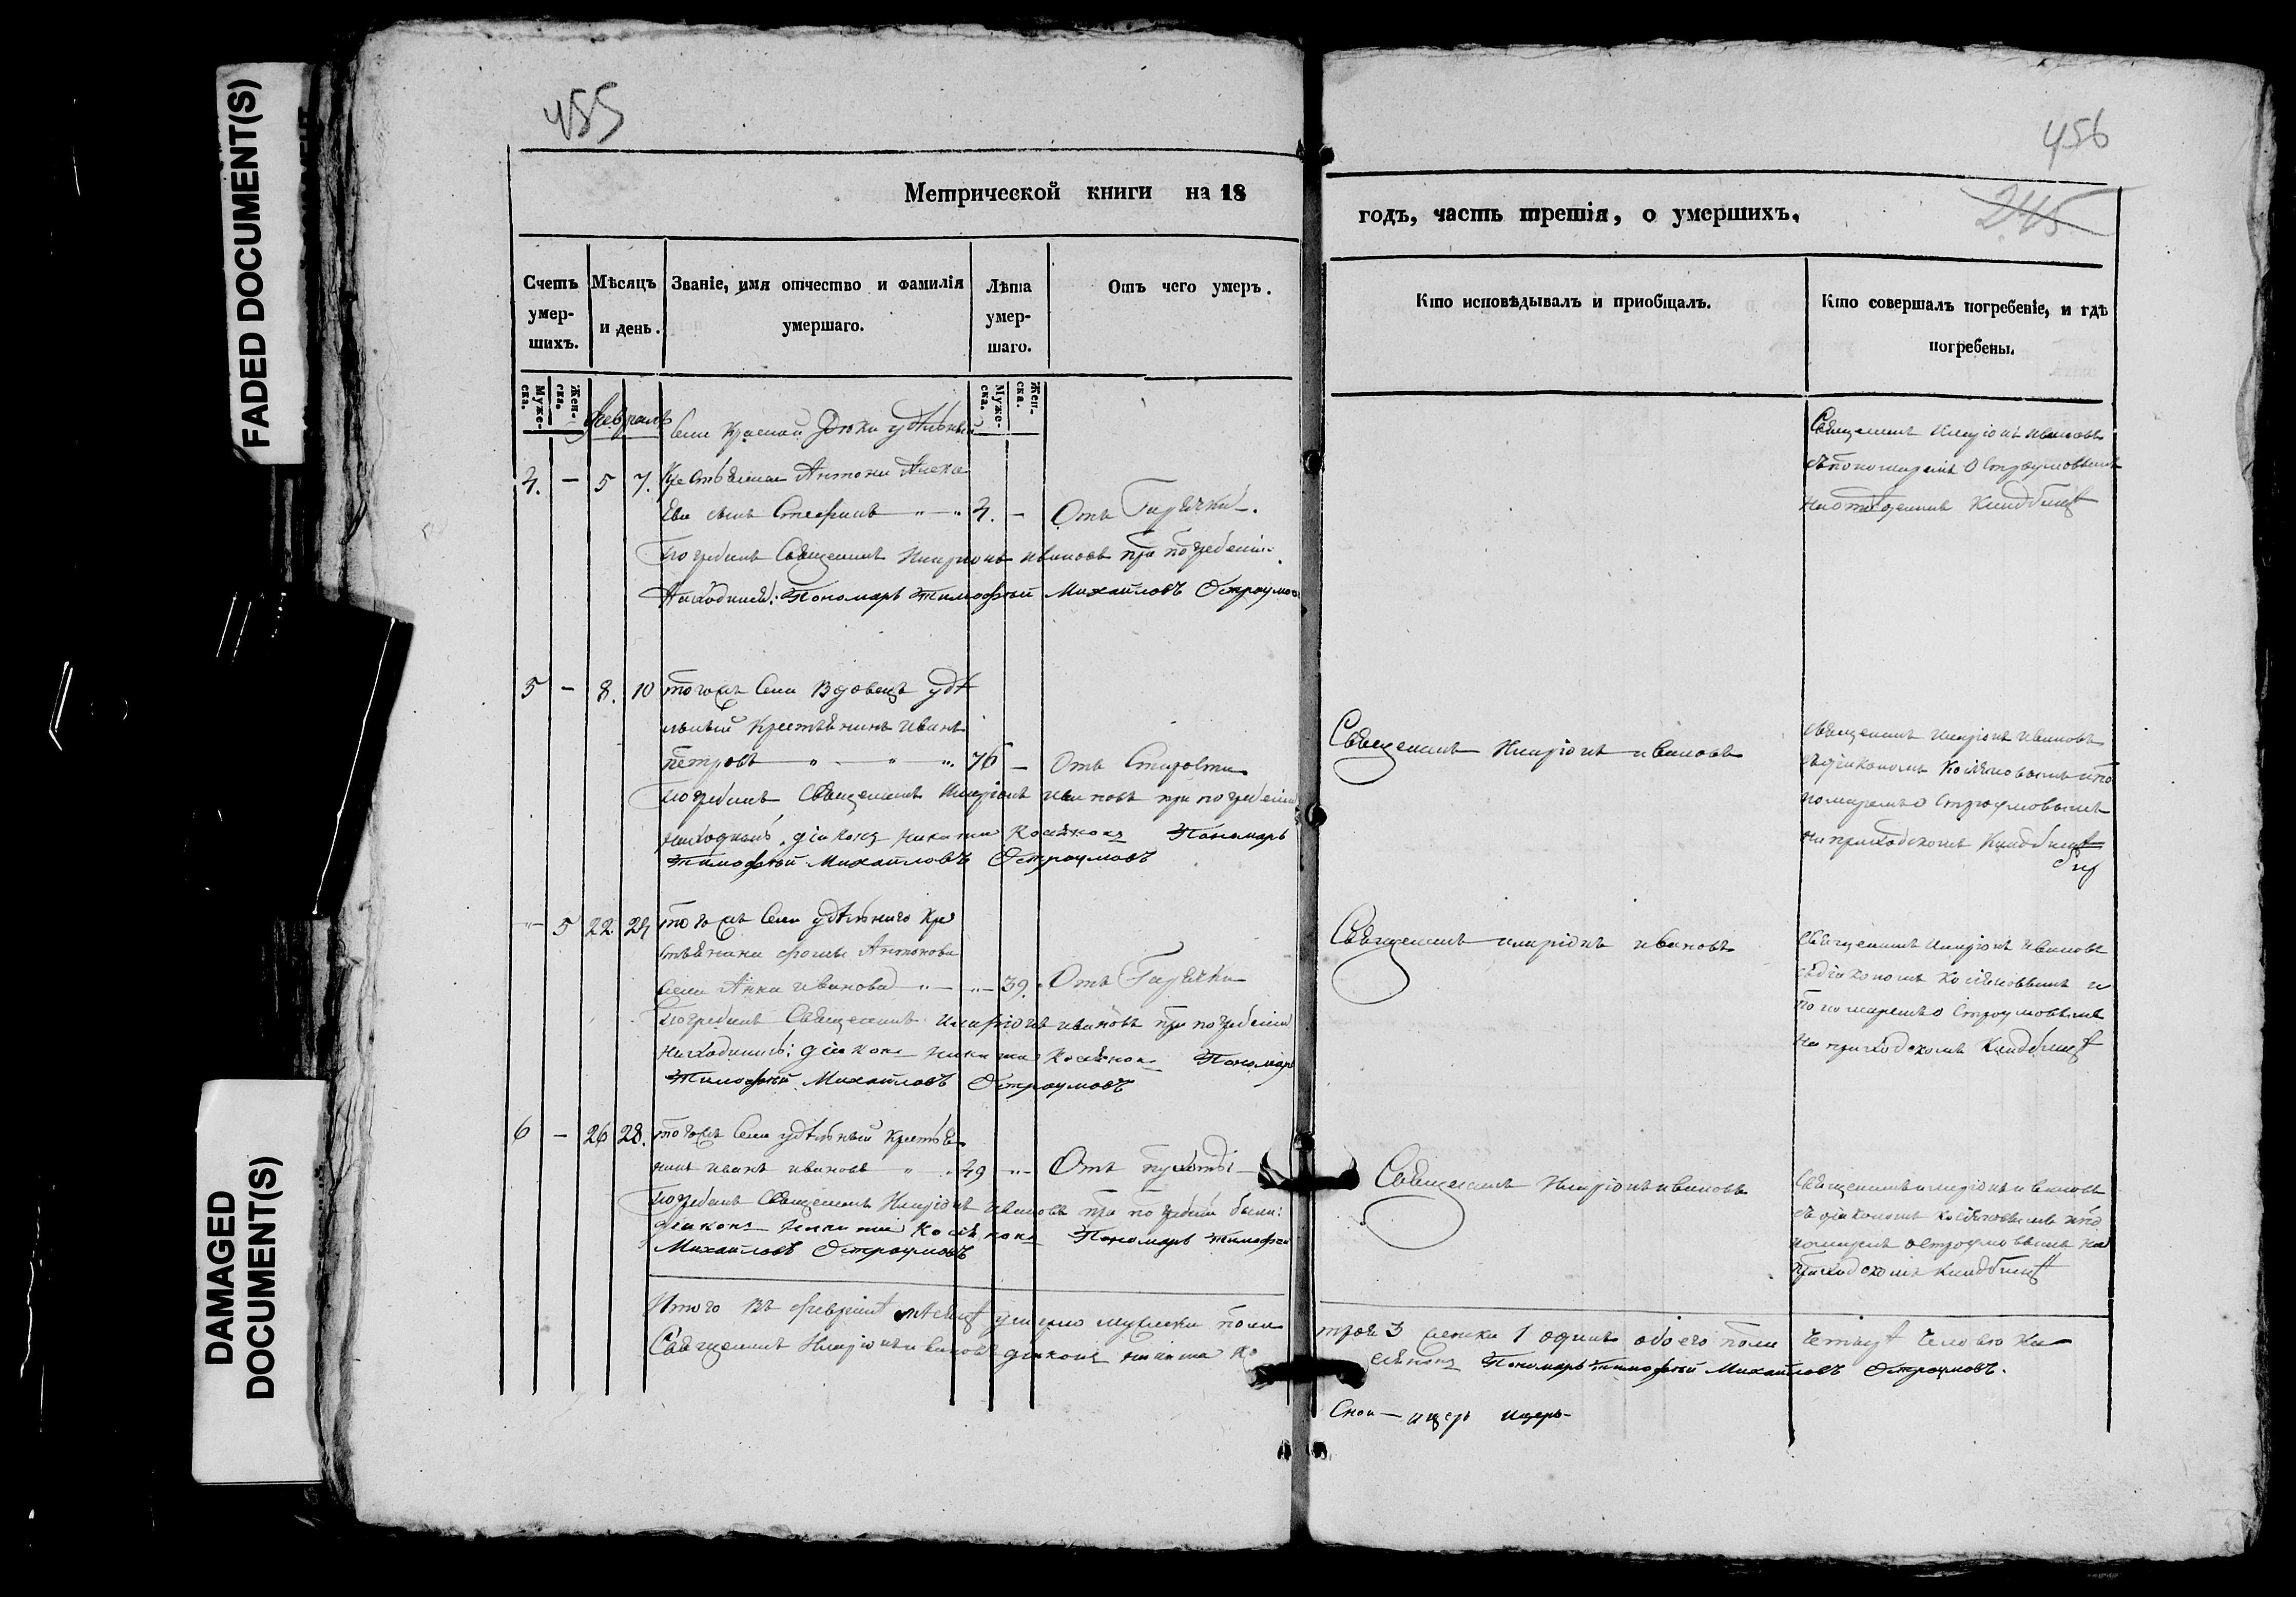 FADED DOCUMENT(S)
DAMAGED
DOCUMENT(S)
455
Метрической книги на 18
Счетъ умер-шихъ.
Мѣсяцъ и день.
Званіе, имя отчество и фамилія умершаго.
Лѣта умер-шаго.
Отъ чего умеръ.
Муже-ска.
Жен-ска.
Муже-ска.
Жен-ска.
Февраль
Села Красной удѣльный
4. — 5 7. Антони
Евъ сынъ Стефанъ 4. — Отъ Горячки.
погребалъ Священникъ Иларіонъ Ивановъ при погребеніи
находился: Пономарь Тимофѣй Михайловъ Остроумов
5 — 8. 10 тогожъ села вдовецъ удѣ
льный крестьянинъ Иванъ
Петровъ 76 — Отъ Старости
погребалъ Священникъ Иларіонъ Ивановъ при погребеніи
діаконъ Никита Пономарь
Тимофѣй Михайловъ Остроумовъ
— 5 22. 24 тогожъ села удѣльнаго кре
стьянина Фомы Антонова
Анна Иванова 39. Отъ Горячки
погребалъ Священникъ Иларіонъ Ивановъ при погребеніи
находились: діаконъ Никита Пономарь
Тимофѣй Михайловъ Остроумовъ
6 — 26 28. тогожъ села удѣльный крестья
нинъ Иванъ Ивановъ 49 — Отъ
погребалъ Священникъ Иларіонъ Ивановъ при погребеніи были:
діаконъ Никита Пономарь Тимофей
Михайловъ Остроумовъ
Итого въ февралѣ мѣсяцѣ умерло мужеска пола
Священникъ Иларіонъ Ивановъ діаконъ Никита Ко
456
245
годъ, часть третія, о умершихъ.
Кто исповѣдывалъ и пріобщалъ.
Кто совершалъ погребеніе, и гдѣ погребены.
Священникъ Иларіонъ Ивановъ
съ пономаремъ Остроумовымъ
на кладбищѣ
Священникъ Иларіонъ Ивановъ
Священникъ Иларіонъ Ивановъ
съ діакономъ и по
номаремъ Остроумовымъ
на приходскомъ кладбищѣ
Священникъ Иларіонъ Ивановъ
Священникъ Иларіонъ Ивановъ
съ діакономъ и
пономаремъ Остроумовымъ
на приходскомъ кладбищѣ
Священникъ Иларіонъ Ивановъ
Священникъ Иларіонъ Ивановъ
съ діакономъ и по
номаремъ Остроумовымъ на
приходскомъ кладбищѣ
трое 3 женска 1 одинъ обоего пола четыре человека
Пономарь Тимофѣй Михайловъ Остроумовъ.